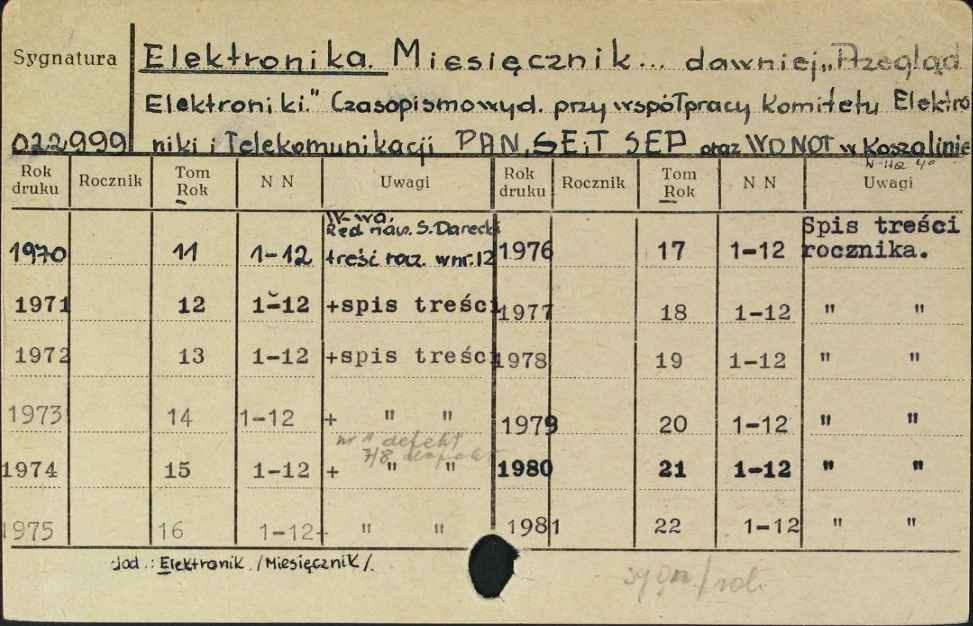 Sygnatura
Elektronika. Miesięcznik... dawniej „Przegląd
Elektroniki." Czasopismo wyd. przy współpracy Komitetu Elektro
022999 niki i Telekomunikacji PAN, SE i T SEP oraz WD NOT w Koszalinie
Rok druku Rocznik Tom Rok N N Uwagi Rok druku Rocznik Tom Rok N N Uwagi
W-wa.
Red. nacz. S. Darecki
1970 11 1-12 treść rocz. w nr. 12 1976 17 1-12 Spis treści rocznika.
1971 12 1-12 +spis treści 1977 18 1-12 " "
1972 13 1-12 +spis treści 1978 19 1-12 " "
1973 14 1-12 + " " 1979 20 1-12 " "
nr 11 defekt
7/8
1974 15 1-12 + " " 1980 21 1-12 " "
1975 16 1-12+ " " 1981 22 1-12 " "
dod.: Elektronik. /Miesięcznik/.
sygn/